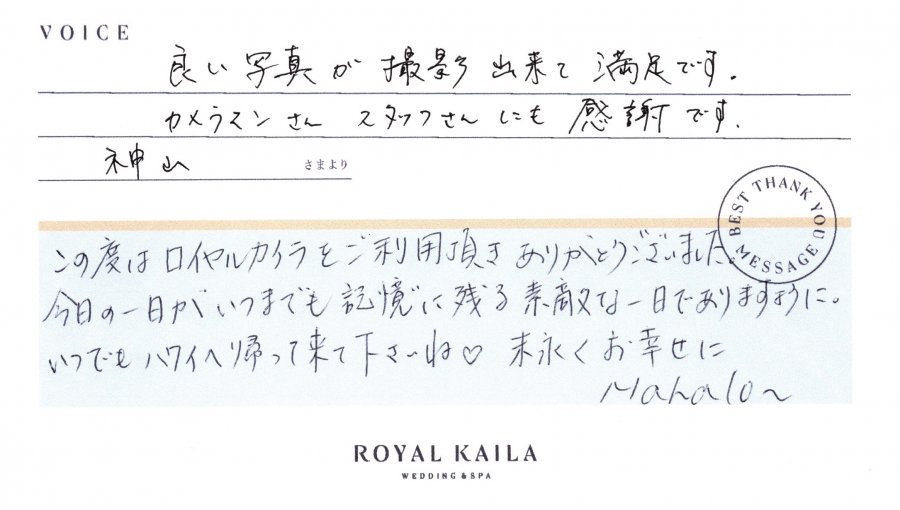 VOICE
良い写真が撮影出来て満足です.
カメラマンさん スタッフさんにも 感謝です.
神山 さまより
BEST THANK YOU MESSAGE
この度はロイヤルカイラをご利用頂きありがとうございました.
今日の一日がいつまでも記憶に残る素敵な一日でありますように。
いつでもハワイへ帰って来て下さいね♡ 末永くお幸せに
Mahalo~
ROYAL KAILA
WEDDING & SPA